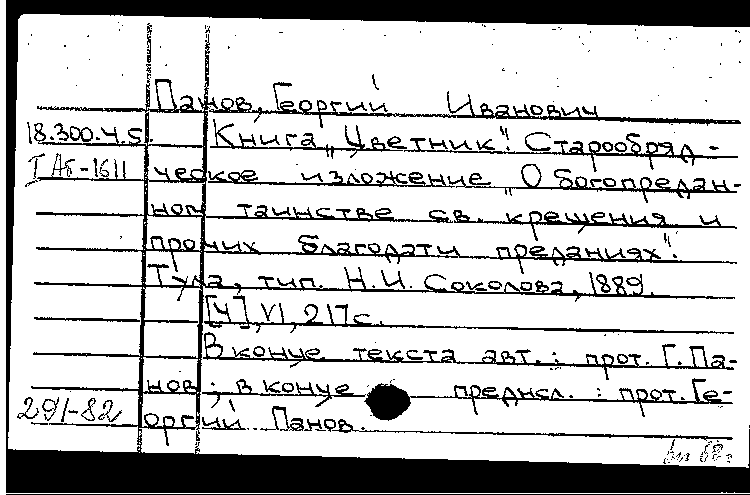 Панов, Георгий Иванович
18.300.4.5. Книга „Цветник". Старообряд-
I Аб-1611 ческое изложение „О богопредан-
ном таинстве св. крещения и
прочих благодати преданиях".
Тула, тип. Н.И. Соколова, 1889.
[4], VI, 217с.
В конце текста авт.: прот. Г. Па-
нов; в конце предисл.: прот. Ге-
291-82 оргий Панов.